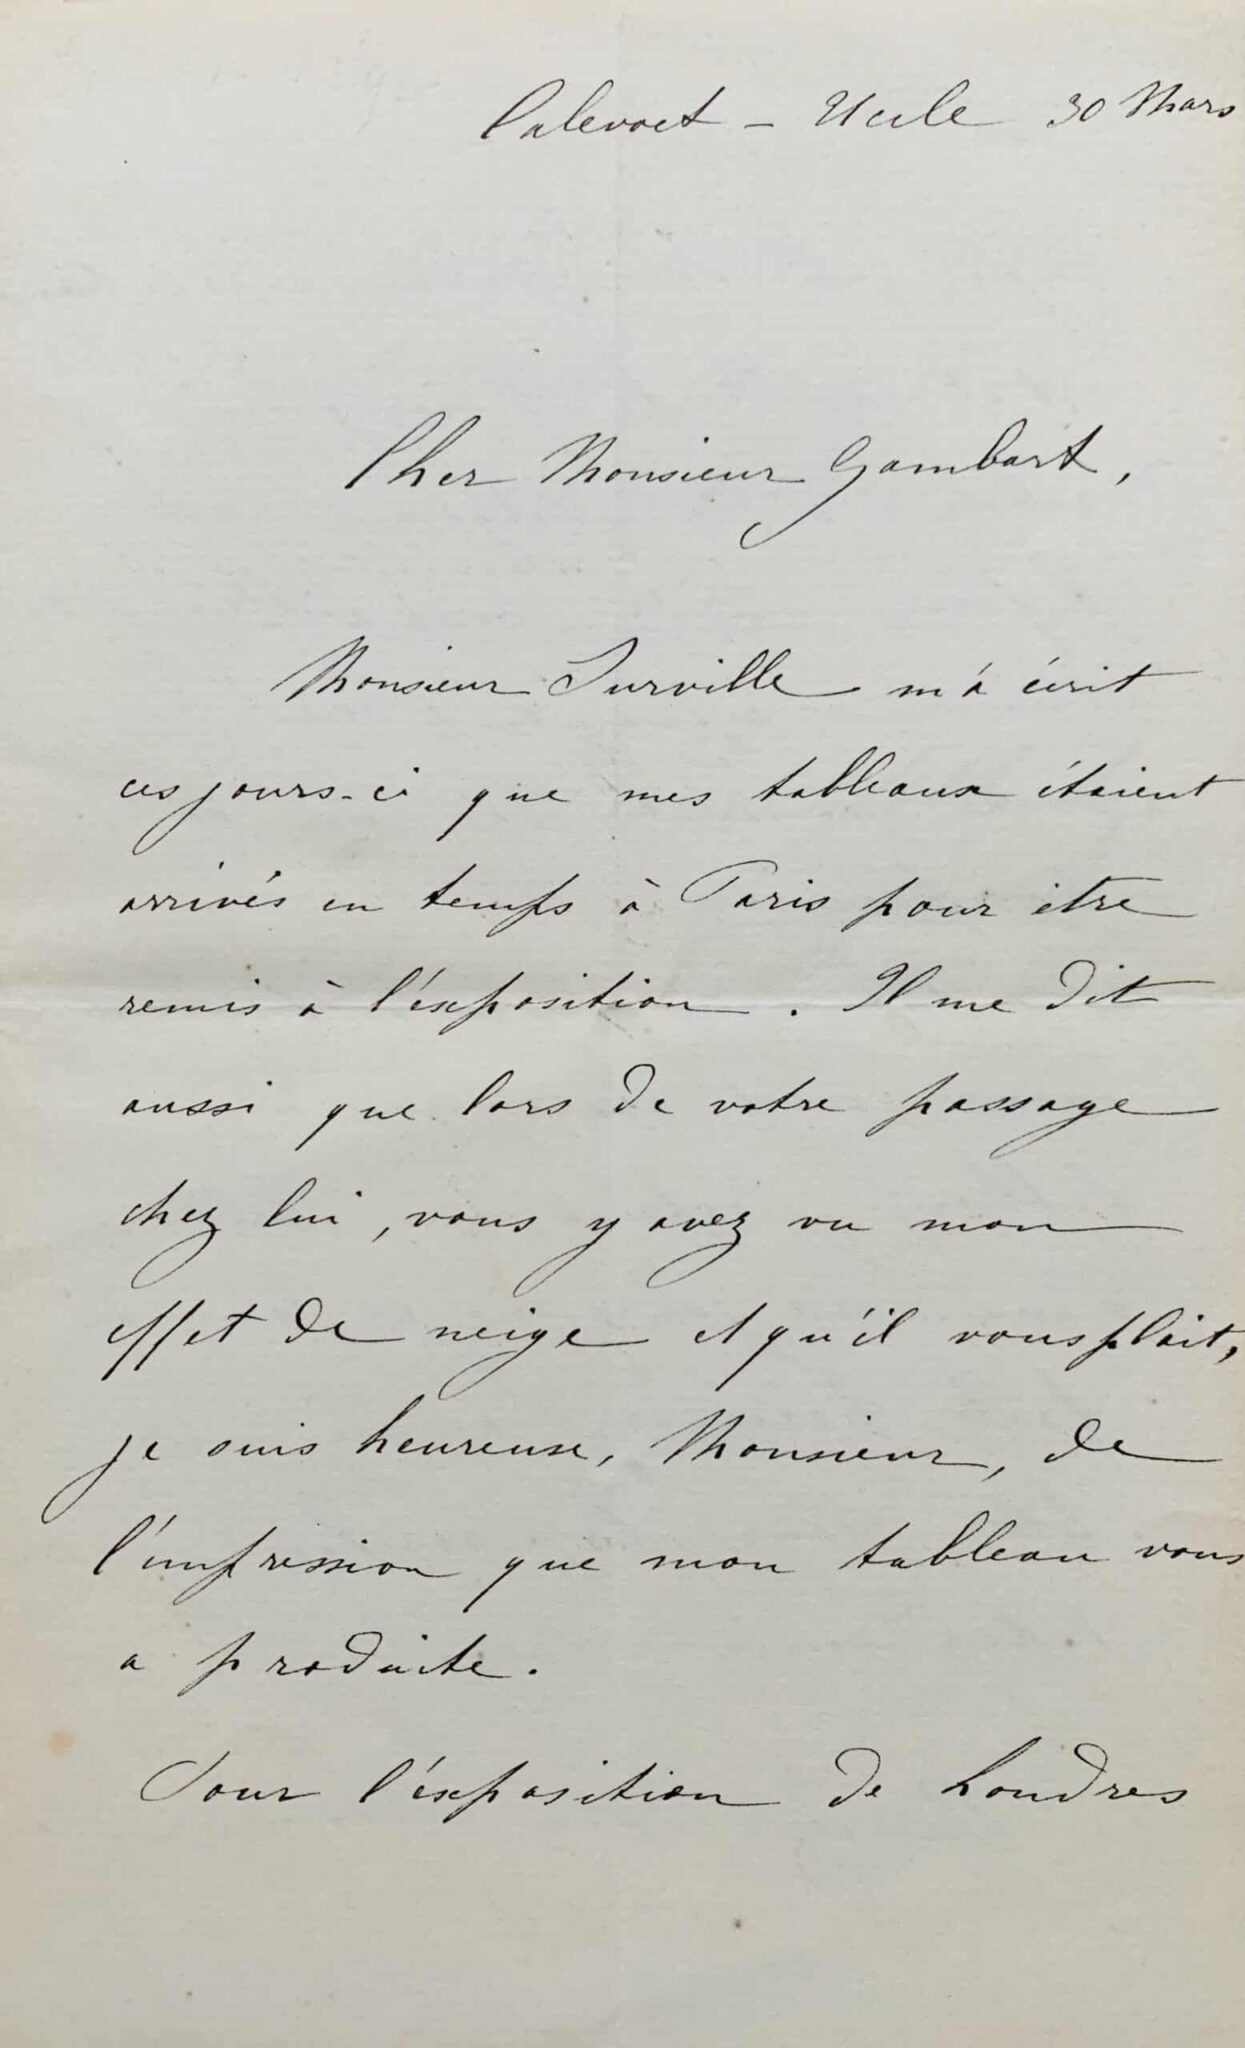 Calevoet - Uccle 30 Mars
Cher Monsieur Gambart,
Monsieur Surville m'a écrit
ces jours-ci que mes tableaux étaient
arrivés en temps à Paris pour être
remis à l'exposition. Il me dit
aussi que lors de votre passage
chez lui, vous y avez vu mon
effet de neige et qu'il vous plait,
je suis heureuse, Monsieur, de
l'impression que mon tableau vous
a produite.
Pour l'exposition de Londres